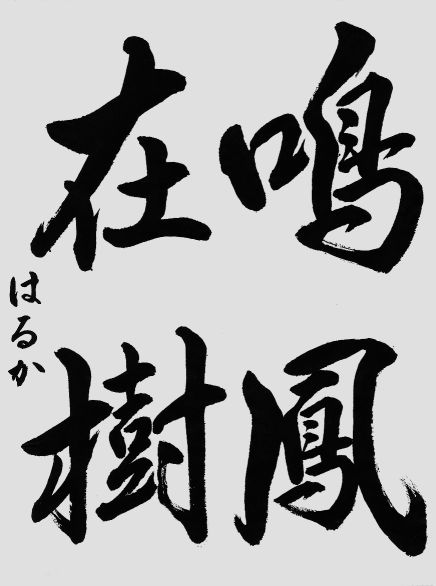 鳴鳳
在樹
はるか